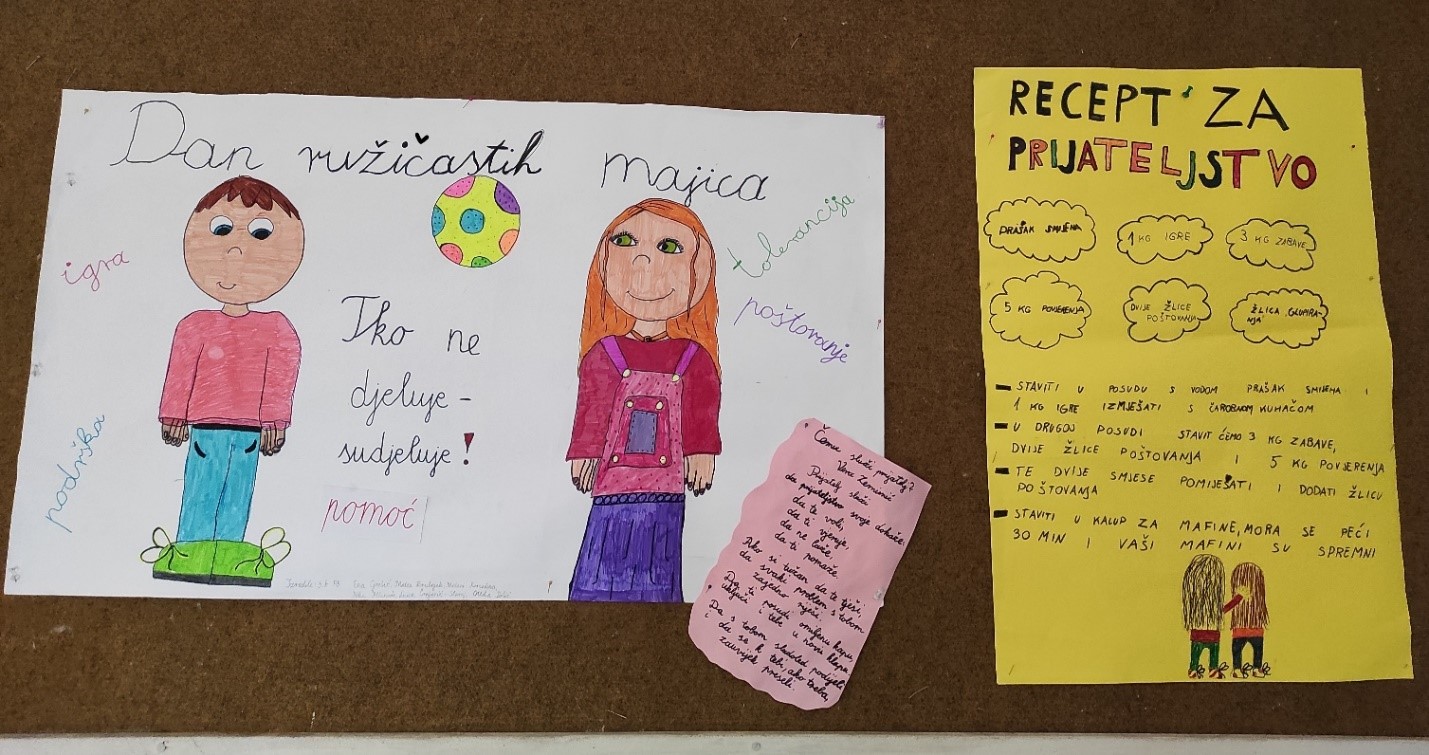 Dan ružičastih majica
igra
podrška
Tko ne
djeluje -
sudjeluje!
pomoć
tolerancija
poštovanje
Čemu služi prijatelj?
Prijatelj služi
da prijateljstvo svoje dokaže.
da te voli,
da ti vjeruje,
da ne laže.
da ti pomaže.
Ako si tužan da te tješi,
da svaki problem s tobom
zajedno riješi.
Da ti posudi omiljenu kapu,
uključi i tebe u novu klapu,
Da s tobom sladoled podijeli
i da se k tebi, ako treba,
zauvijek preseli.
RECEPT ZA
PRIJATELJSTVO
PRAŠAK SMIJEHA
1 KG IGRE
3 KG ZABAVE
5 KG POVJERENJA
DVIJE ŽLICE
POŠTOVANJA
ŽLICA GLUPIRA-
NJA
- STAVITI U POSUDU S VODOM PRAŠAK SMIJEHA I
1 KG IGRE IZMJEŠATI S ČAROBNOM KUHAČOM
- U DRUGOJ POSUDI STAVIT ĆEMO 3 KG ZABAVE,
DVIJE ŽLICE POŠTOVANJA I 5 KG POVJERENJA
- TE DVIJE SMJESE POMIJEŠATI I DODATI ŽLICU
POŠTOVANJA
- STAVITI U KALUP ZA MAFINE, MORA SE PEĆI
30 MIN I VAŠI MAFINI SU SPREMNI